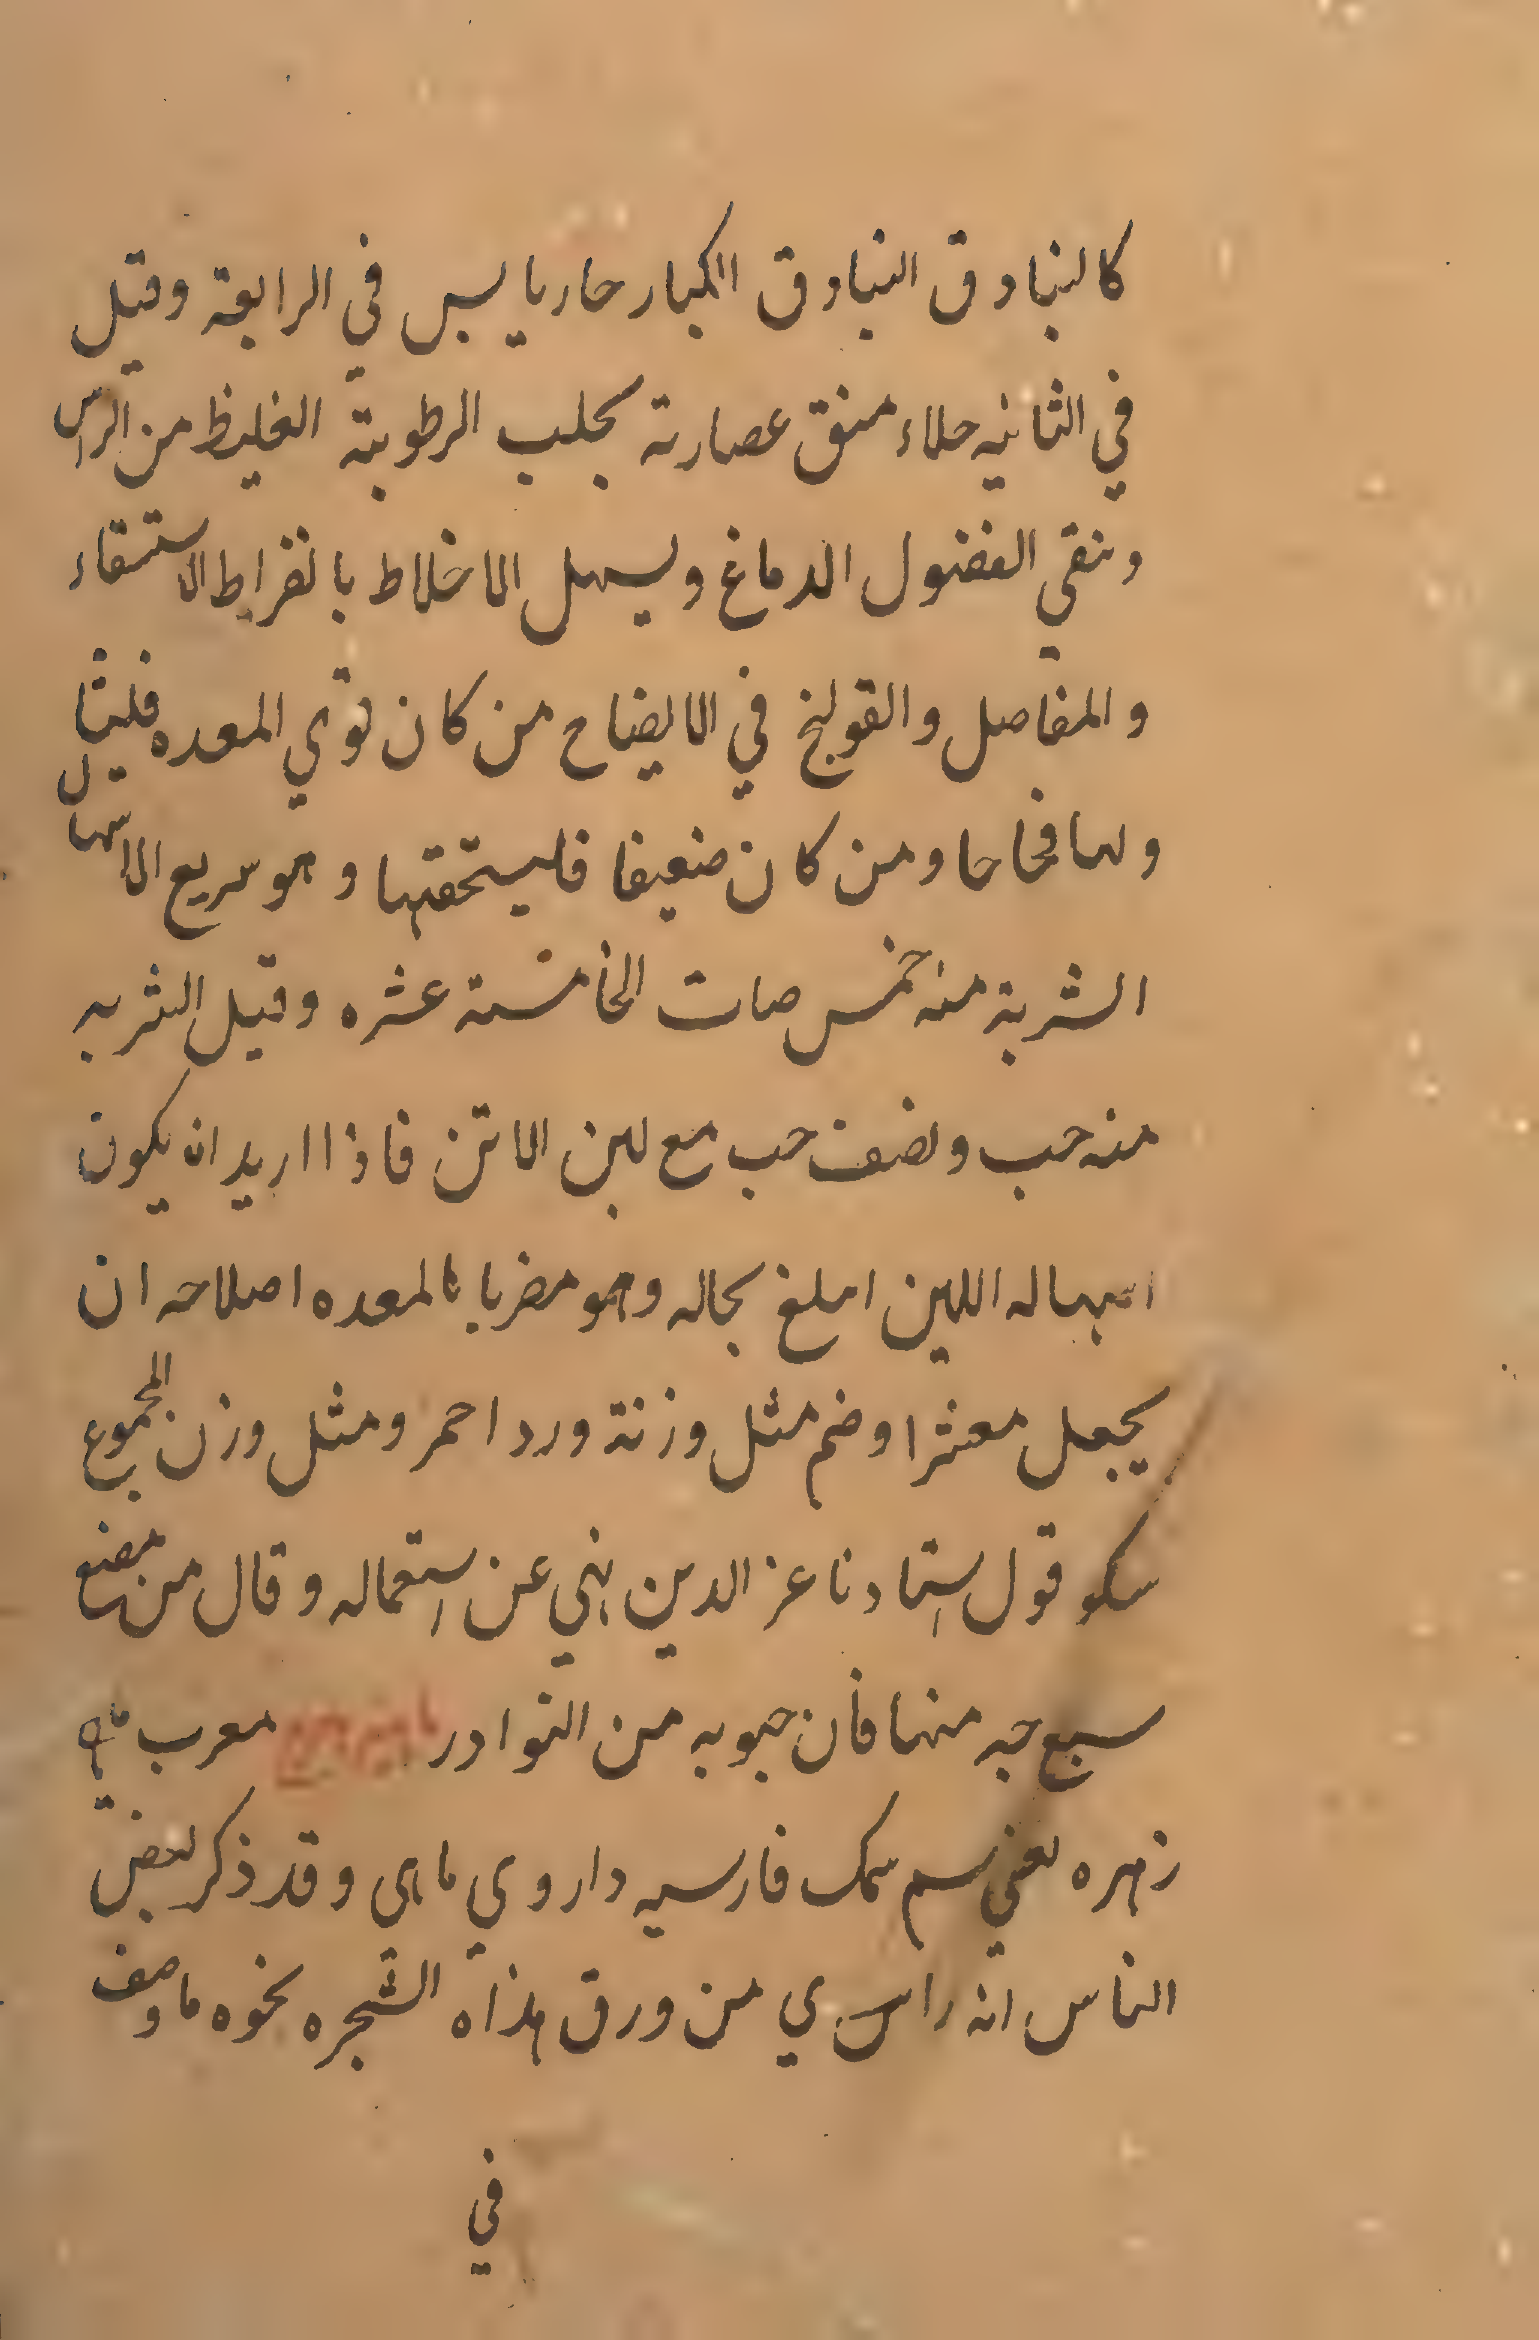 كالبنادق البنادق الكبار حار يابس في الرابعة وقيل
في الثانيه جلاء منق عصارته يجلب الرطوبة الغليظ من الراس
وينقي الفضول الدماغ ويسهل الاخلاط بالفراط الاستسقاء
والمفاصل والقولنج في الايضاح من كان قوي المعده
ومن كان ضعيفا فليستحقتها وهو سريع الاسهال
الشربة منه خمس حبات الخامسة عشره وقيل الشربه
منه حب ونصف حب مع لبن الاتن فاذا اريد ان يكون
اسهاله اللين ابلغ بحاله وهو مضربا بالمعده اصلاحه ان
يجعل معثرا وضم مثل وزنة ورد احمر ومثل وزن المجموع
سكر قول استادنا عز الدين نهي عن استعماله وقال من
سبع حبه منها فأن حبوبه من النوادر معرب ماهي
زهره يعني سم سمك فارسيه داروي ماهى وقد ذكر بعض
الناس انه راس ي من ورق هذاه الشجره نحوه ما وصف
في